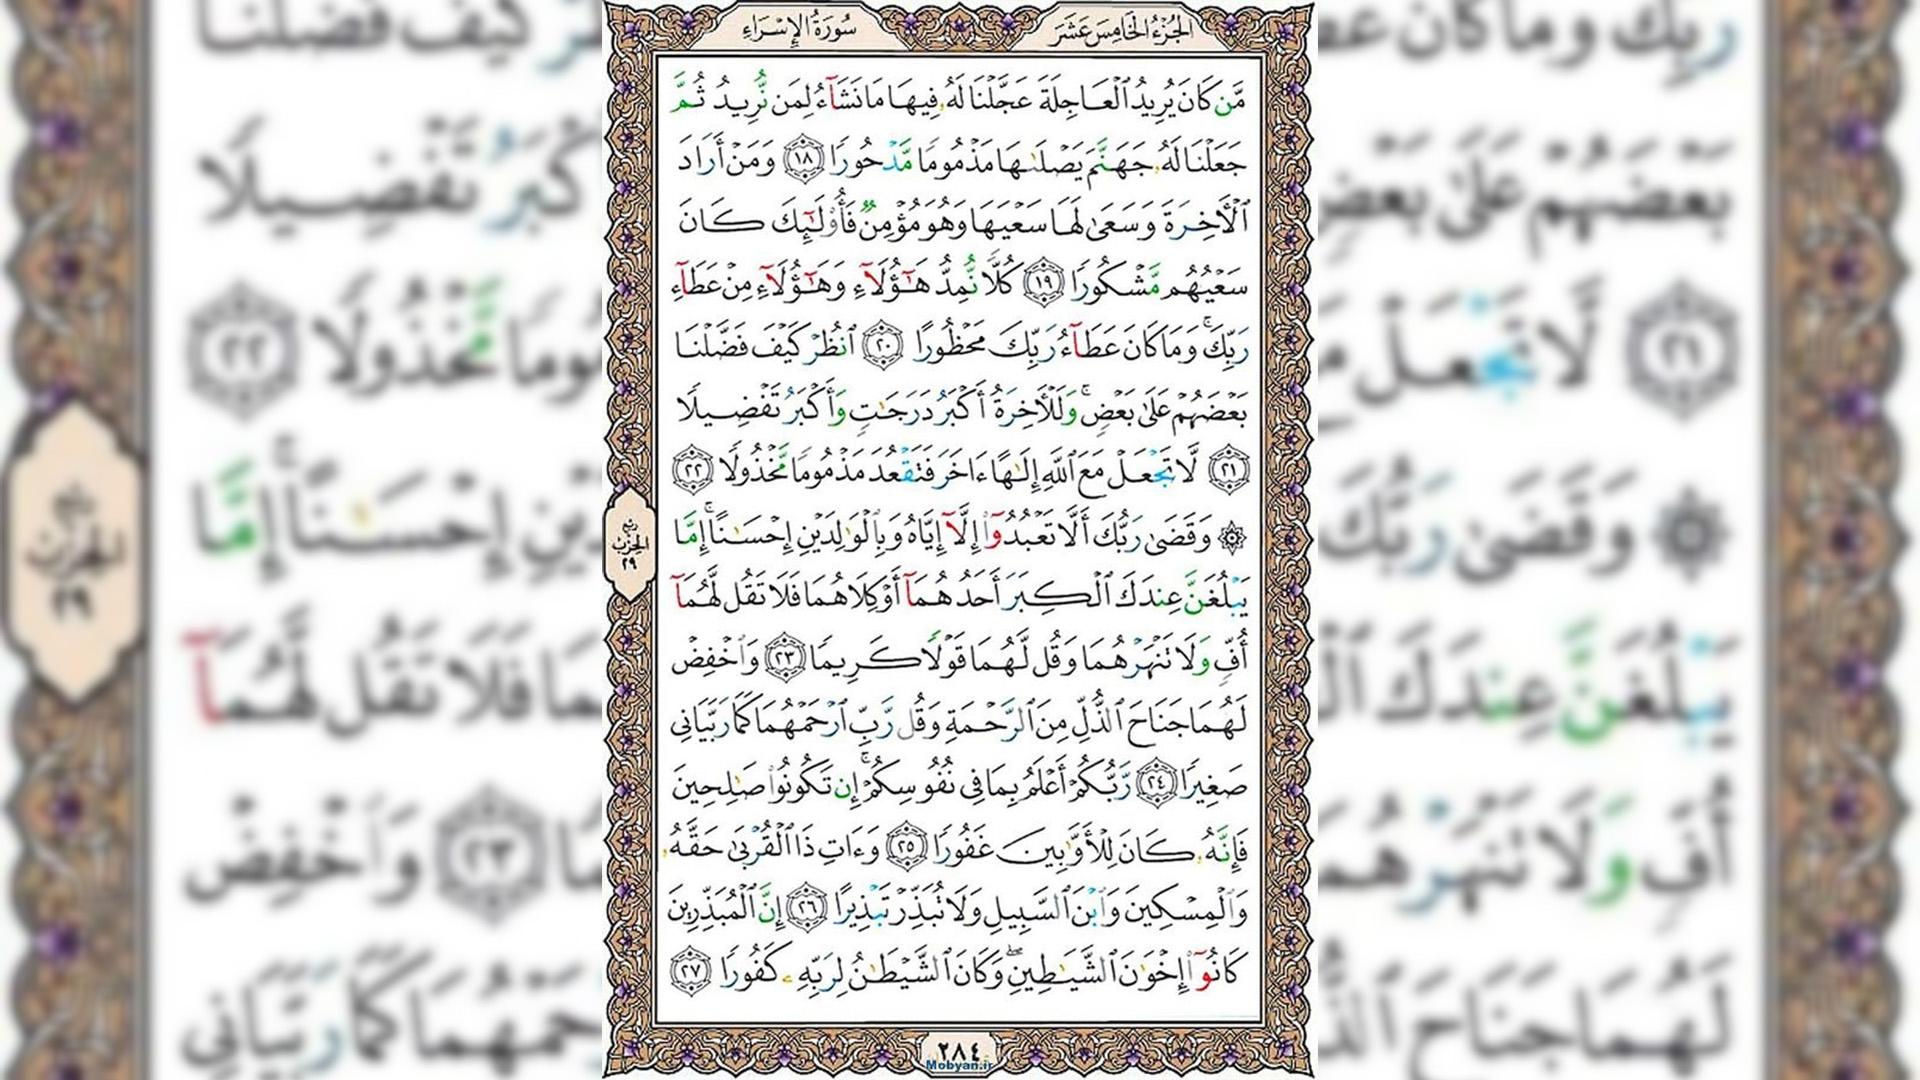 الجُزْءُ الخَامِسَ عَشَرَ
سُورَةُ الإِسْرَاءِ
مَّن كَانَ يُرِيدُ ٱلْعَاجِلَةَ عَجَّلْنَا لَهُۥ فِيهَا مَا نَشَآءُ لِمَن نُّرِيدُ ثُمَّ
جَعَلْنَا لَهُۥ جَهَنَّمَ يَصْلَىٰهَا مَذْمُومًا مَّدْحُورًا ١٨ وَمَنْ أَرَادَ
ٱلْأَخِرَةَ وَسَعَىٰ لَهَا سَعْيَهَا وَهُوَ مُؤْمِنٌ فَأُو۟لَٰٓئِكَ كَانَ
سَعْيُهُم مَّشْكُورًا ١٩ كُلًّا نُّمِدُّ هَٰٓؤُلَآءِ وَهَٰٓؤُلَآءِ مِنْ عَطَآءِ
رَبِّكَ ۚ وَمَا كَانَ عَطَآءُ رَبِّكَ مَحْظُورًا ٢٠ ٱنظُرْ كَيْفَ فَضَّلْنَا
بَعْضَهُمْ عَلَىٰ بَعْضٍ ۚ وَلَلْأَخِرَةُ أَكْبَرُ دَرَجَٰتٍ وَأَكْبَرُ تَفْضِيلًا
٢١ لَّا تَجْعَلْ مَعَ ٱللَّهِ إِلَٰهًا ءَاخَرَ فَتَقْعُدَ مَذْمُومًا مَّخْذُولًا ٢٢
۞ وَقَضَىٰ رَبُّكَ أَلَّا تَعْبُدُوٓا۟ إِلَّآ إِيَّاهُ وَبِٱلْوَٰلِدَيْنِ إِحْسَٰنًا ۚ إِمَّا
يَبْلُغَنَّ عِندَكَ ٱلْكِبَرَ أَحَدُهُمَآ أَوْ كِلَاهُمَا فَلَا تَقُل لَّهُمَآ
أُفٍّ وَلَا تَنْهَرْهُمَا وَقُل لَّهُمَا قَوْلًا كَرِيمًا ٢٣ وَٱخْفِضْ
لَهُمَا جَنَاحَ ٱلذُّلِّ مِنَ ٱلرَّحْمَةِ وَقُل رَّبِّ ٱرْحَمْهُمَا كَمَا رَبَّيَانِى
صَغِيرًا ٢٤ رَّبُّكُمْ أَعْلَمُ بِمَا فِى نُفُوسِكُمْ ۚ إِن تَكُونُوا۟ صَٰلِحِينَ
فَإِنَّهُۥ كَانَ لِلْأَوَّٰبِينَ غَفُورًا ٢٥ وَءَاتِ ذَا ٱلْقُرْبَىٰ حَقَّهُۥ
وَٱلْمِسْكِينَ وَٱبْنَ ٱلسَّبِيلِ وَلَا تُبَذِّرْ تَبْذِيرًا ٢٦ إِنَّ ٱلْمُبَذِّرِينَ
كَانُوٓا۟ إِخْوَٰنَ ٱلشَّيَٰطِينِ ۖ وَكَانَ ٱلشَّيْطَٰنُ لِرَبِّهِۦ كَفُورًا ٢٧
ربع
الحزب
٢٩
٢٨٤
Mobyan.ir